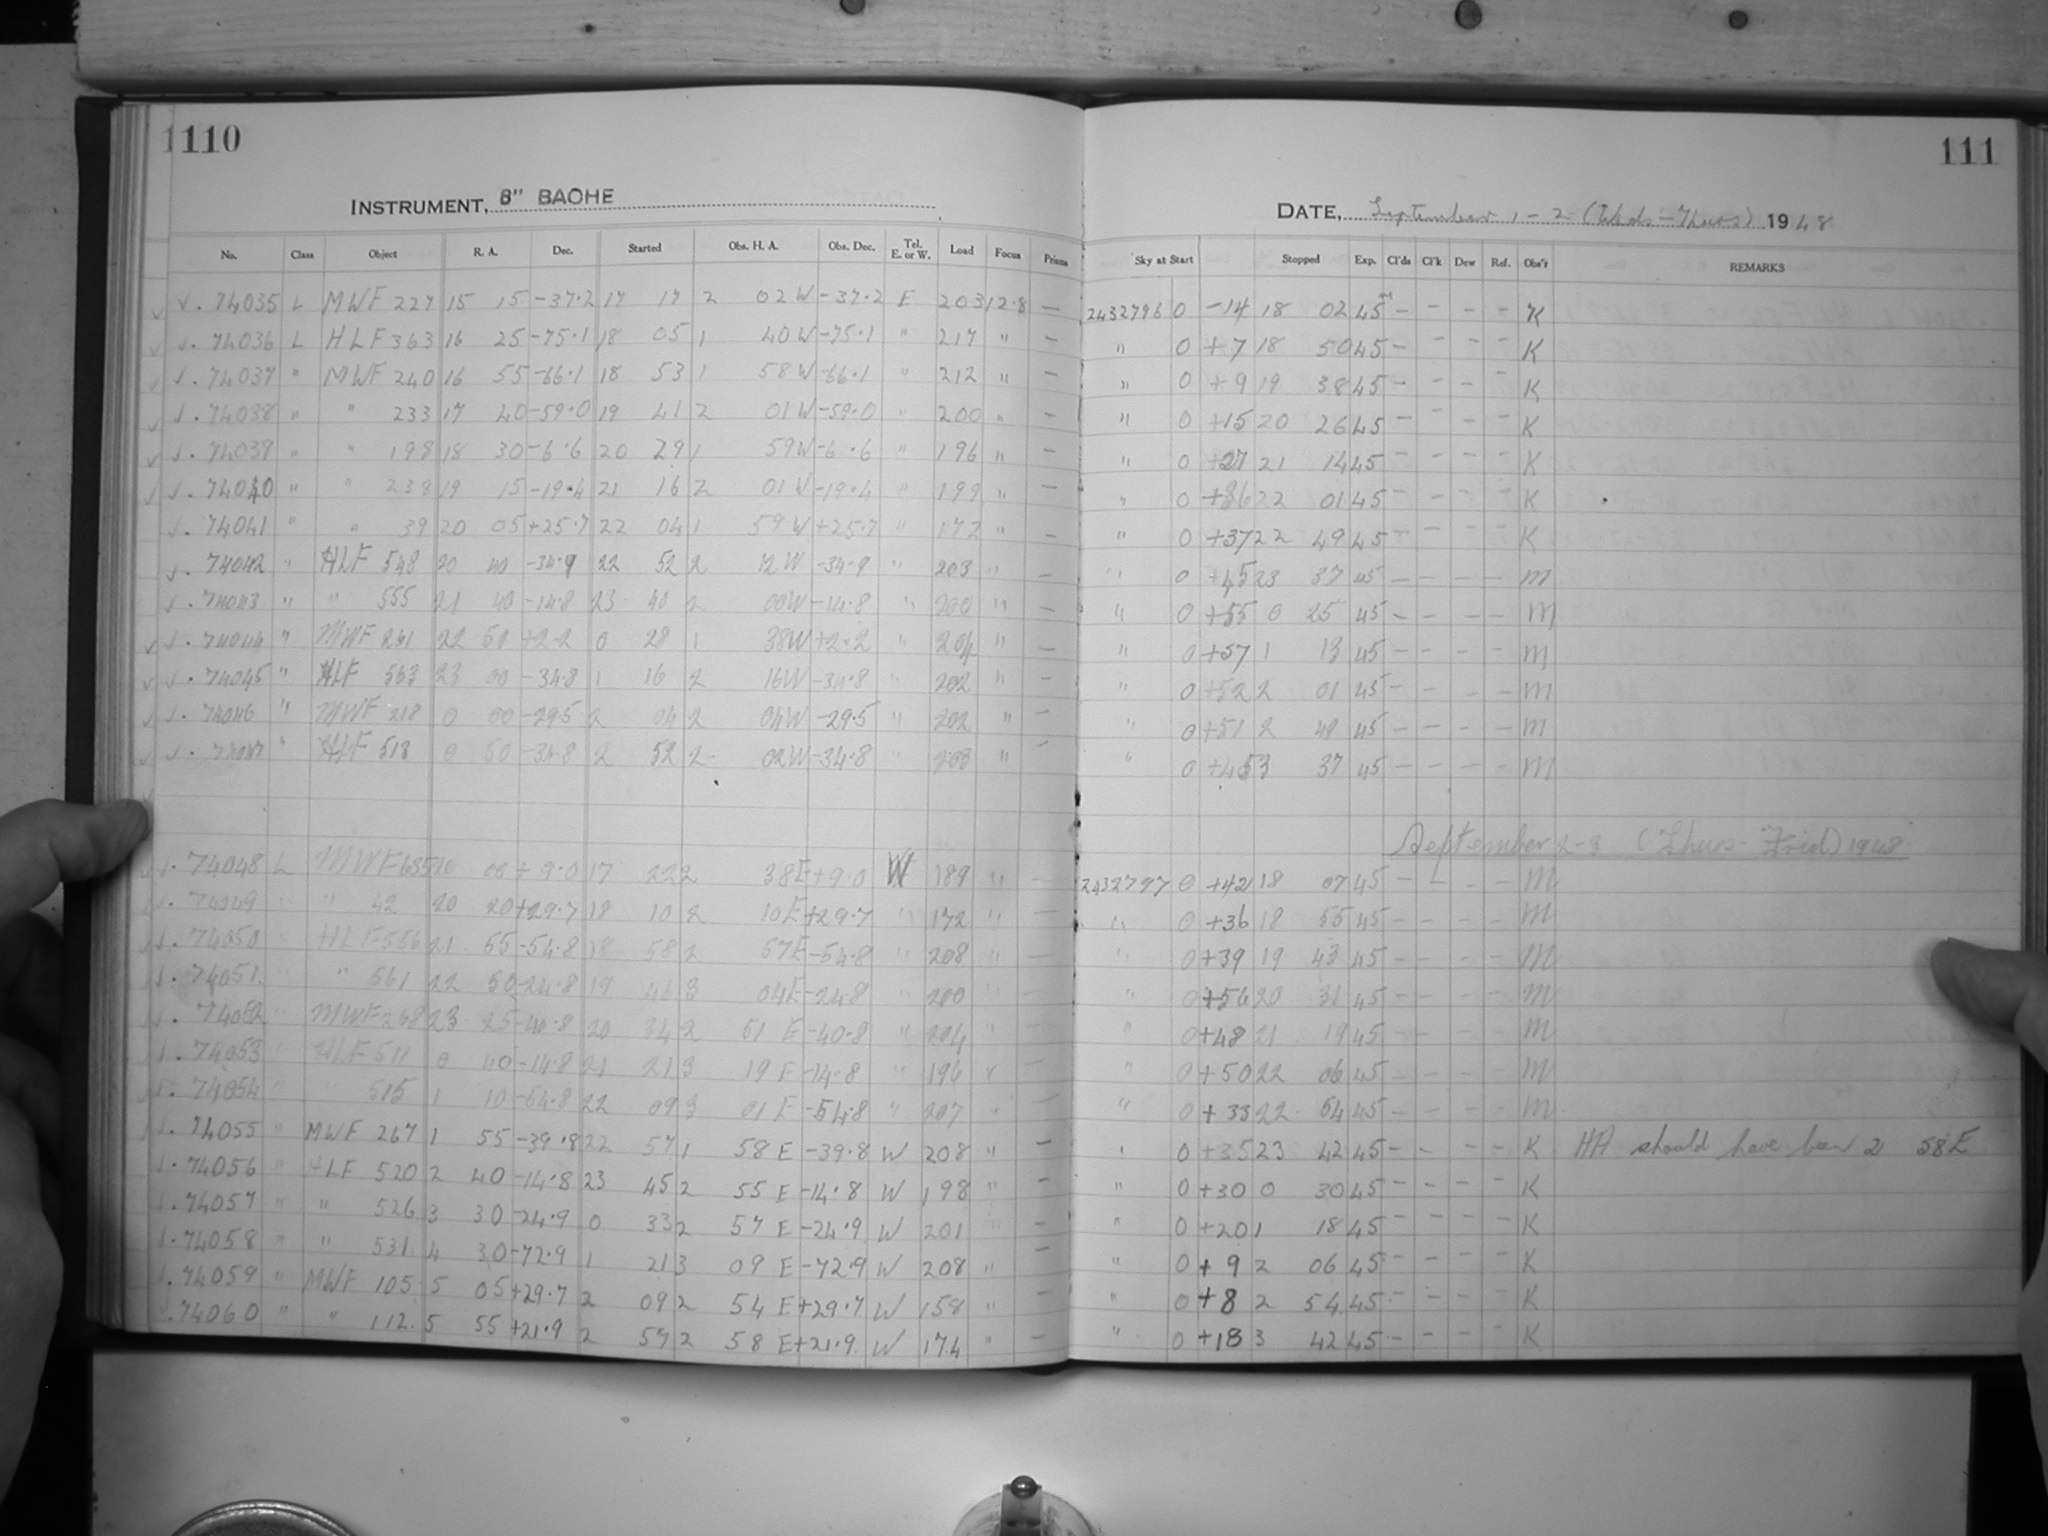 1110
111
INSTRUMENT, 8" BAOHE
DATE, September 1-2 (Weds-Thurs) 1948
No. Class Object R. A. Dec. Started Obs. H. A. Obs. Dec. Tel. E. or W. Load Focus Prisms Sky at Start Stopped Exp. Cl'ds Cl'k Dew Ref. Obs'r REMARKS
√. 74035 L MWF 227 15 15 -37.2 17 17 2 02 W -37.2 E 203 12.8 — 2432796 0 -14 18 02 45 — - - - K
√. 74036 L HLF 363 16 25 -75.1 18 05 1 40 W -75.1 " 217 " — " 0 +7 18 50 45 — - - - K
√. 74037 " MWF 240 16 55 -66.1 18 53 1 58 W -66.1 " 212 " — " 0 +9 19 38 45 — - - - K
√. 74038 " " 233 17 40 -59.0 19 41 2 01 W -59.0 " 200 " — " 0 +15 20 26 45 - - - - K
√. 74039 " " 198 18 30 -6.6 20 29 1 59 W -6.6 " 196 " — " 0 +27 21 14 45 - - - - K
√. 74040 " " 238 19 15 -19.4 21 16 2 01 W -19.4 " 199 " — " 0 +36 22 01 45 - - - - K
√. 74041 " " 39 20 05 +25.7 22 04 1 59 W +25.7 " 172 " — " 0 +37 22 49 45 - - - - K
√. 74042 " HLF 548 20 40 -34.9 22 52 2 12 W -34.9 " 203 " — " 0 +45 23 37 45 — — — — M
√. 74043 " " 555 21 40 -14.8 23 40 2 00 W -14.8 " 200 " — " 0 +55 0 25 45 - - - - M
√. 74044 " MWF 261 22 50 +2.2 0 28 1 38 W +2.2 " 204 " — " 0 +57 1 13 45 - - - - M
√. 74045 " HLF 563 23 00 -34.8 1 16 2 16 W -34.8 " 202 " — " 0 +52 2 01 45 - - - - M
√. 74046 " MWF 218 0 00 -29.5 2 04 2 04 W -29.5 " 202 " — " 0 +51 2 49 45 - - - - M
√. 74047 " HLF 518 0 50 -34.8 2 52 2 02 W -34.8 " 203 " — " 0 +45 3 37 45 - - - - M
September 2-3 (Thurs-Frid) 1948
√. 74048 L MWF 00 +9.0 17 22 2 38 E +9.0 W 189 " — 2432797 0 +42 18 07 45 - L - - M
√. 74049 " " 42 20 20 +29.7 18 10 2 10 E +29.7 " 172 " — " 0 +36 18 55 45 - - - - M
√. 74050 " HLF 556 21 55 -54.8 18 58 2 57 E -54.8 " 208 " — " 0 +39 19 43 45 - - - - M
√. 74051 " " 561 22 50 -24.8 19 46 3 04 E -24.8 " 200 " — " 0 +56 20 31 45 - - - - M
√. 74052 " MWF 268 23 25 -40.8 20 34 2 51 E -40.8 " 204 " — " 0 +48 21 19 45 - - - - M
√. 74053 " HLF 511 0 40 -14.8 21 21 3 19 E -14.8 " 196 " — " 0 +50 22 06 45 - - - - M
√. 74054 " " 515 1 10 -54.8 22 09 3 01 E -54.8 " 207 " — " 0 +33 22 54 45 - - - - M
√. 74055 " MWF 267 1 55 -39.8 22 57 1 58 E -39.8 W 208 " — " 0 +35 23 42 45 - - - - K HA should have been 2 58 E
√. 74056 " HLF 520 2 40 -14.8 23 45 2 55 E -14.8 W 198 " — " 0 +30 0 30 45 - - - - K
√. 74057 " " 526 3 30 -24.9 0 33 2 57 E -24.9 W 201 " — " 0 +20 1 18 45 - - - - K
√. 74058 " " 531 4 30 -72.9 1 21 3 09 E -72.9 W 208 " — " 0 +9 2 06 45 - - - - K
√. 74059 " MWF 105 5 05 +29.7 2 09 2 54 E +29.7 W 158 " — " 0 +8 2 54 45 - - - - K
. 74060 " " 112 5 55 +21.9 2 57 2 58 E +21.9 W 174 " — " 0 +18 3 42 45 - - - - K